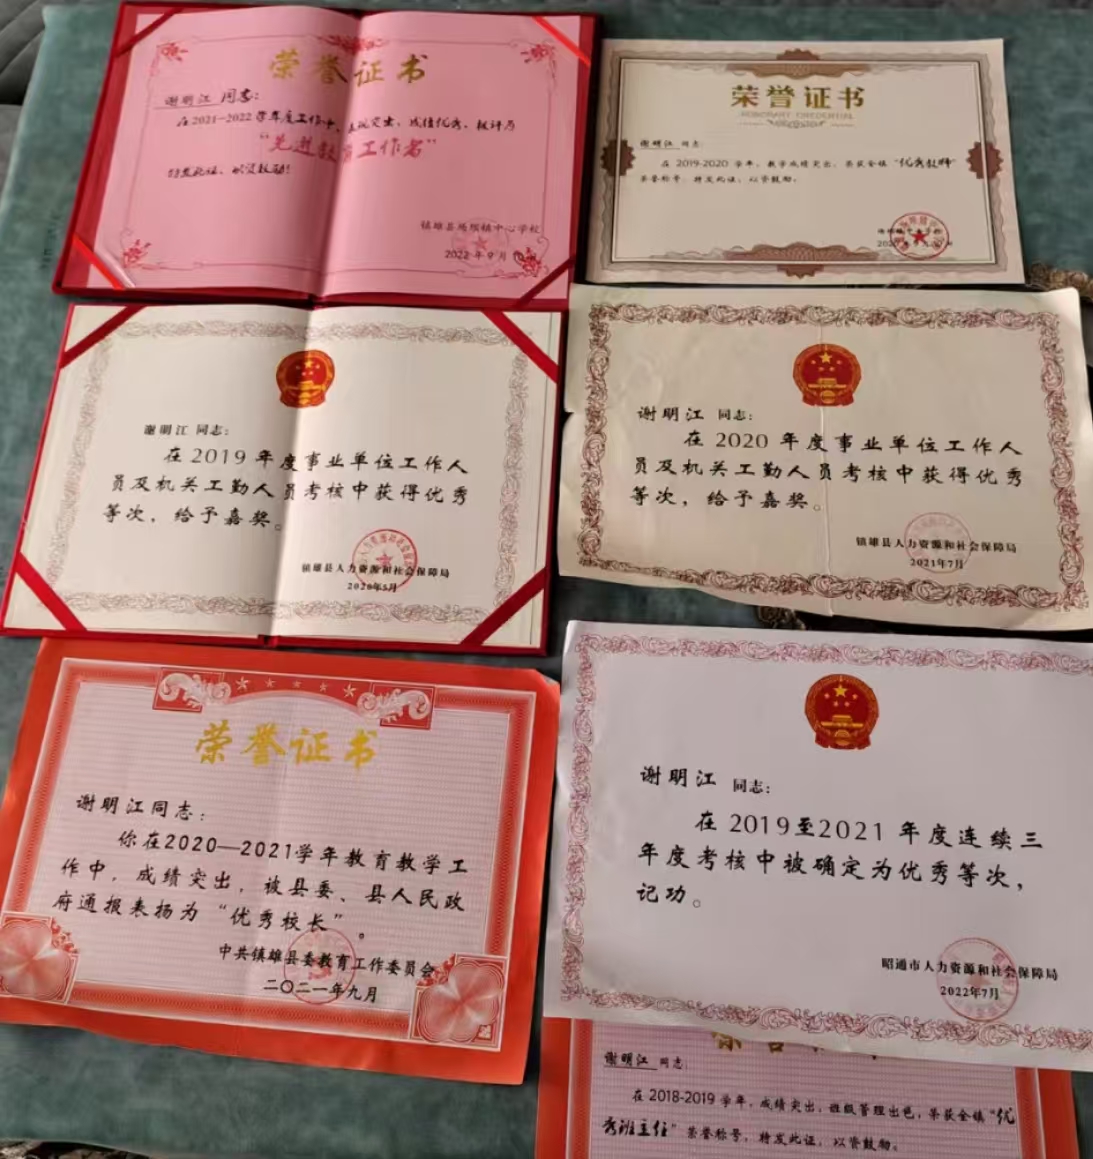 荣誉证书
谢明江 同志：
在2021—2022学年度工作中，表现突出、成绩优秀，被评为
“先进教育工作者”
特发此证，以资鼓励！
镇雄县场坝镇中心学校
2022年9月
荣誉证书
HONORARY CREDENTIAL
谢明江 同志：
在 2019-2020 学年，教学成绩突出，荣获全镇“优秀教师”
荣誉称号，特发此证，以资鼓励。
谢明江 同志：
在 2019 年度事业单位工作人
员及机关工勤人员考核中获得优秀
等次，给予嘉奖。
镇雄县人力资源和社会保障局
2020年5月
谢明江 同志：
在 2020 年度事业单位工作人
员及机关工勤人员考核中获得优秀
等次，给予嘉奖。
镇雄县人力资源和社会保障局
2021年7月
荣誉证书
谢明江同志：
你在2020—2021学年教育教学工
作中，成绩突出，被县委、县人民政
府通报表扬为“优秀校长”。
中共镇雄县委教育工作委员会
二〇二一年九月
谢明江 同志：
在 2019至2021 年度连续三
年度考核中被确定为优秀等次，
记功。
昭通市人力资源和社会保障局
2022年7月
谢明江 同志：
在 2018-2019 学年，成绩突出，班级管理出色，荣获全镇“优
秀班主任”荣誉称号，特发此证，以资鼓励。